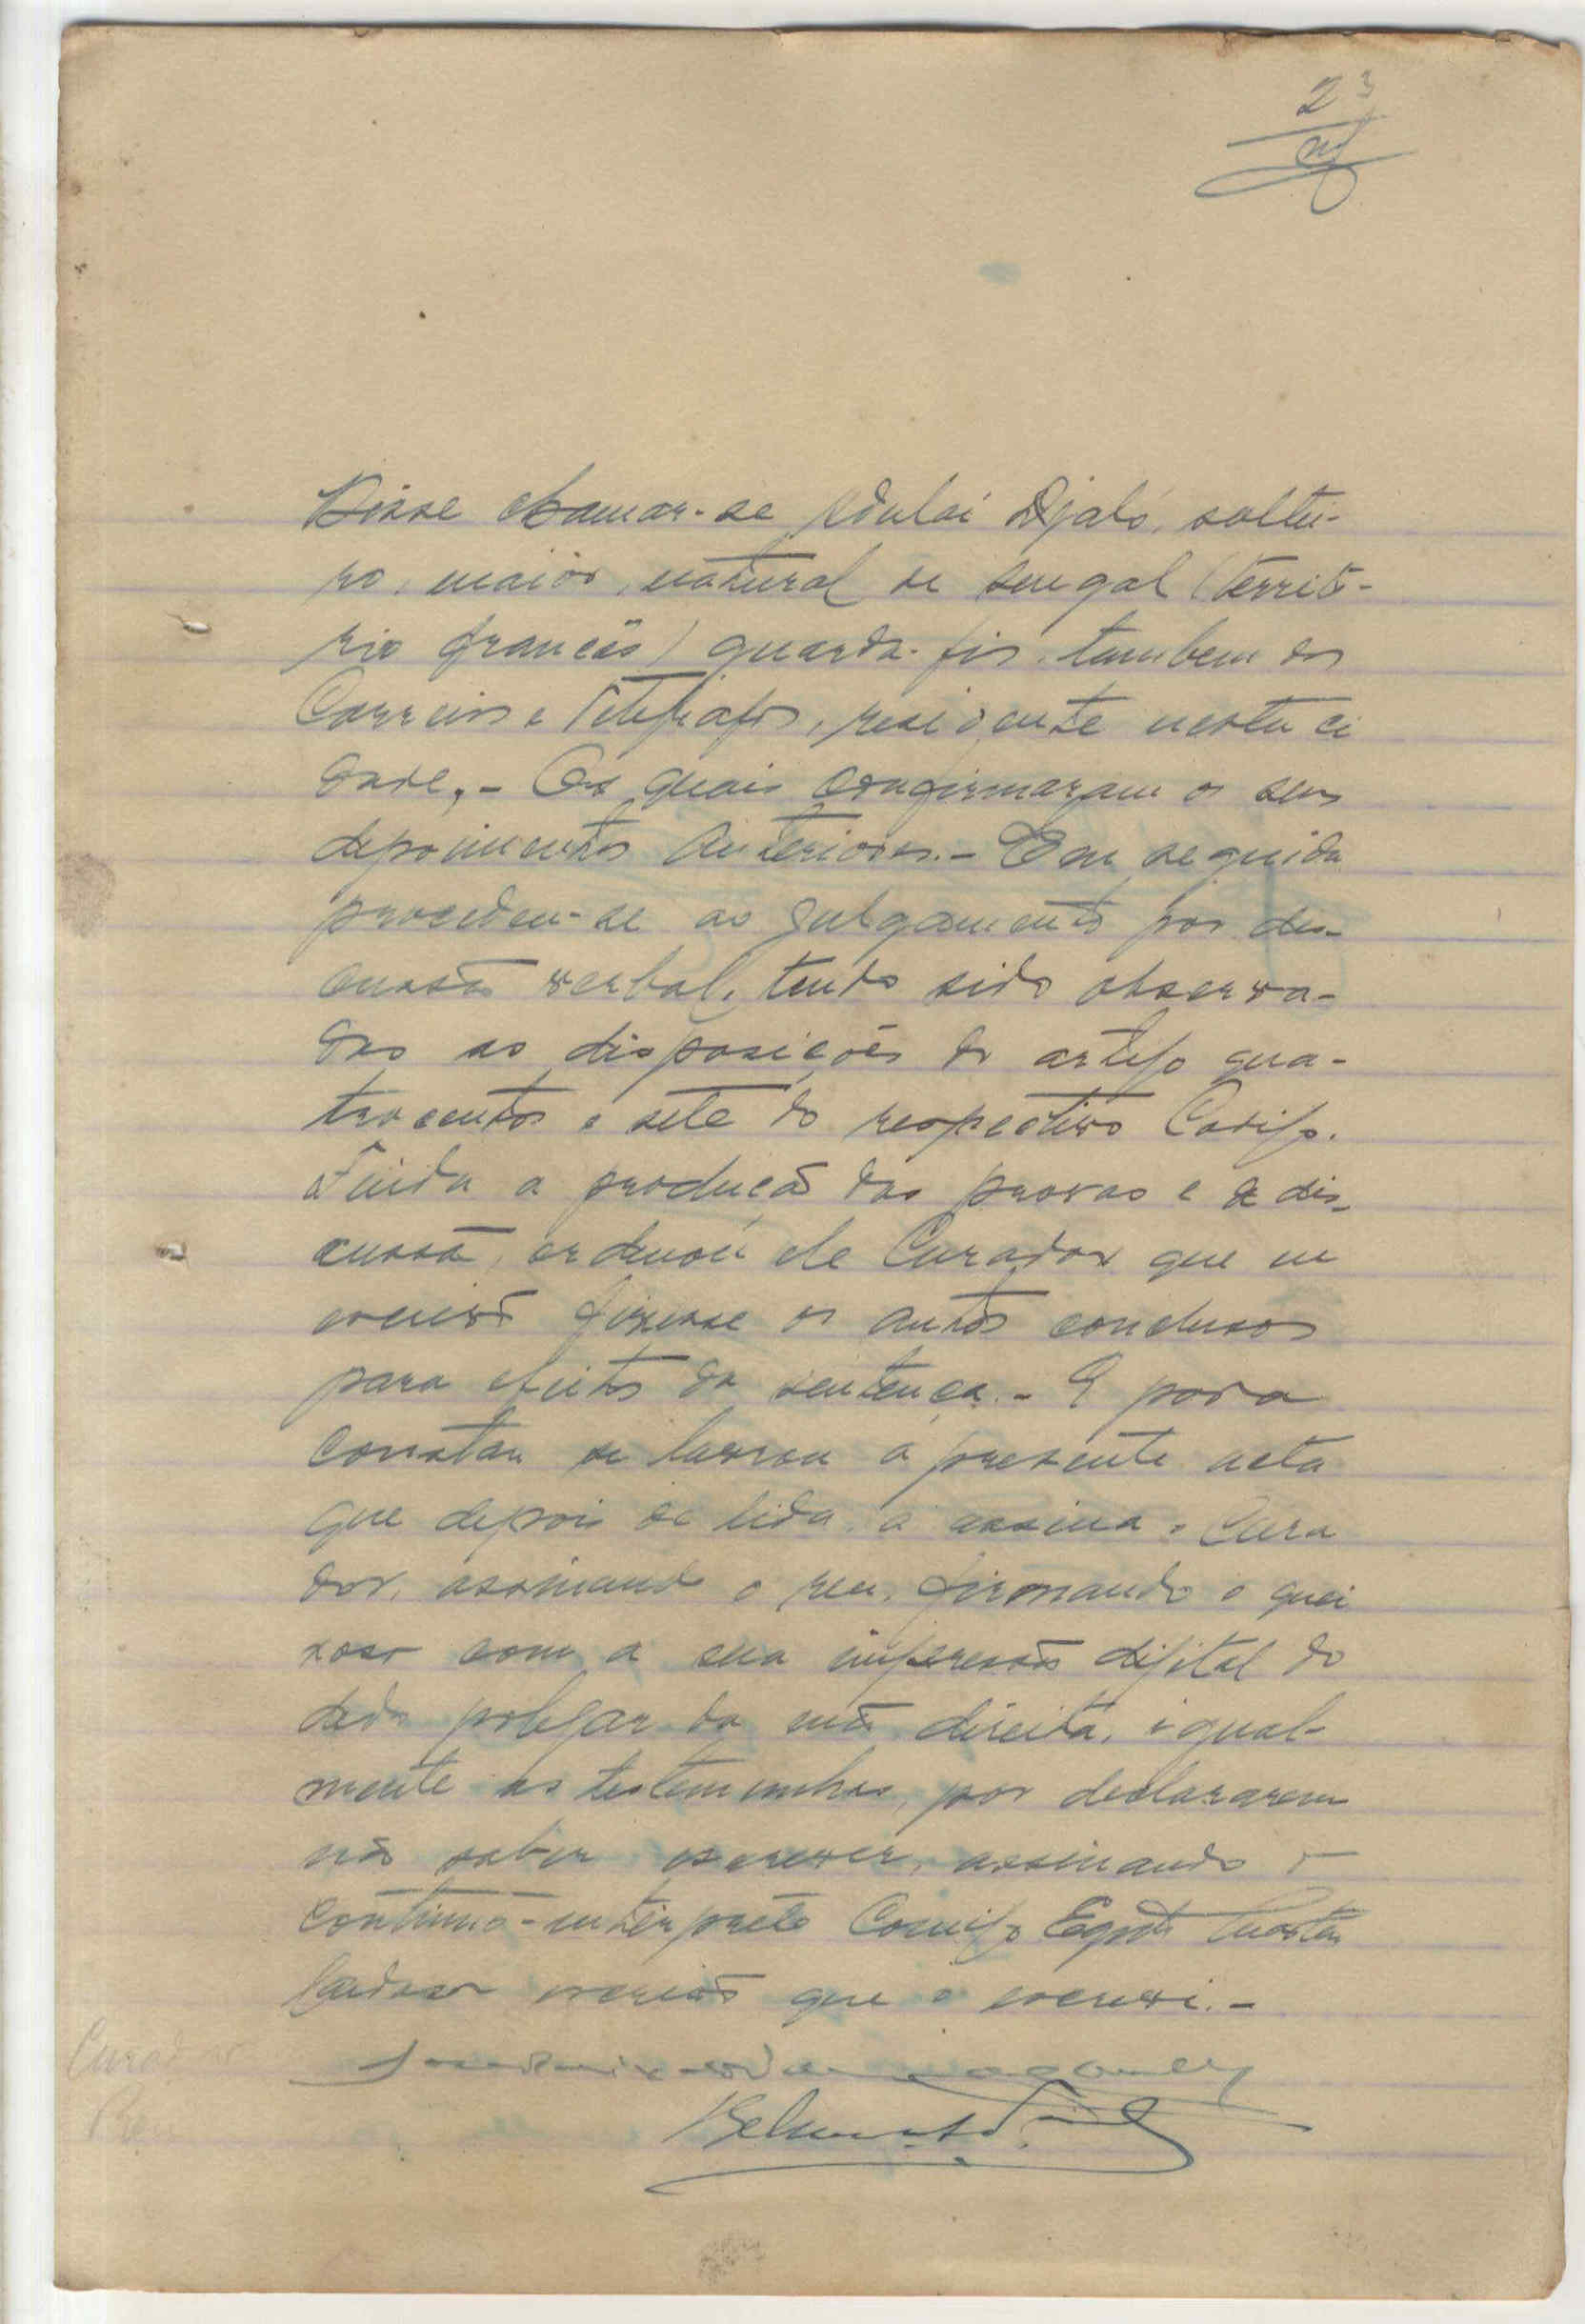 23
Disse chamar-se Adulai Djaló, soltei-
ro, maior, natural de Senegal (Territó-
rio francês) guarda-fios, tambem dos
Correios e Telegrafos, residente nesta ci
dade,- Os quais confirmaram os seus
depoimentos anteriores.- Em seguida
procedeu-se ao julgamento por dis-
cussão verbal, tendo sido observa-
das as disposições do artigo qua-
trocentos e sete do respectivo Codigo.
Finda a produção das provas e a dis-
cussão, ordenou ele Curador que eu
escrivão fizesse os autos conclusos
para efeitos da sentença.- E para
constar se lavrou a presente acta
que depois de lida, a assina o Cura
dor, assinando o reu, firmando o quei
xoso com a sua impressão digital do
dedo polegar da mão direita, igual-
mente as testemunhas, por declararem
não saber escrever, assinando o
continuo-interprete Comigo
Cardoso escrivão que o escrevi.-
Curador
Reu